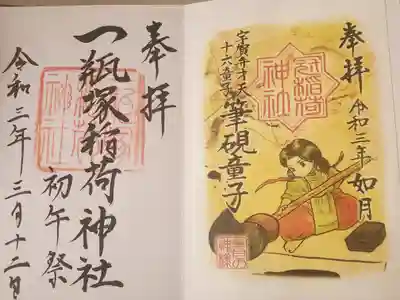 奉拝
一瓶塚稲荷神社
初午祭
令和三年三月十二日
奉拝
令和三年如月
冠稲荷神社
宇賀弁才天
十六童子
筆硯童子